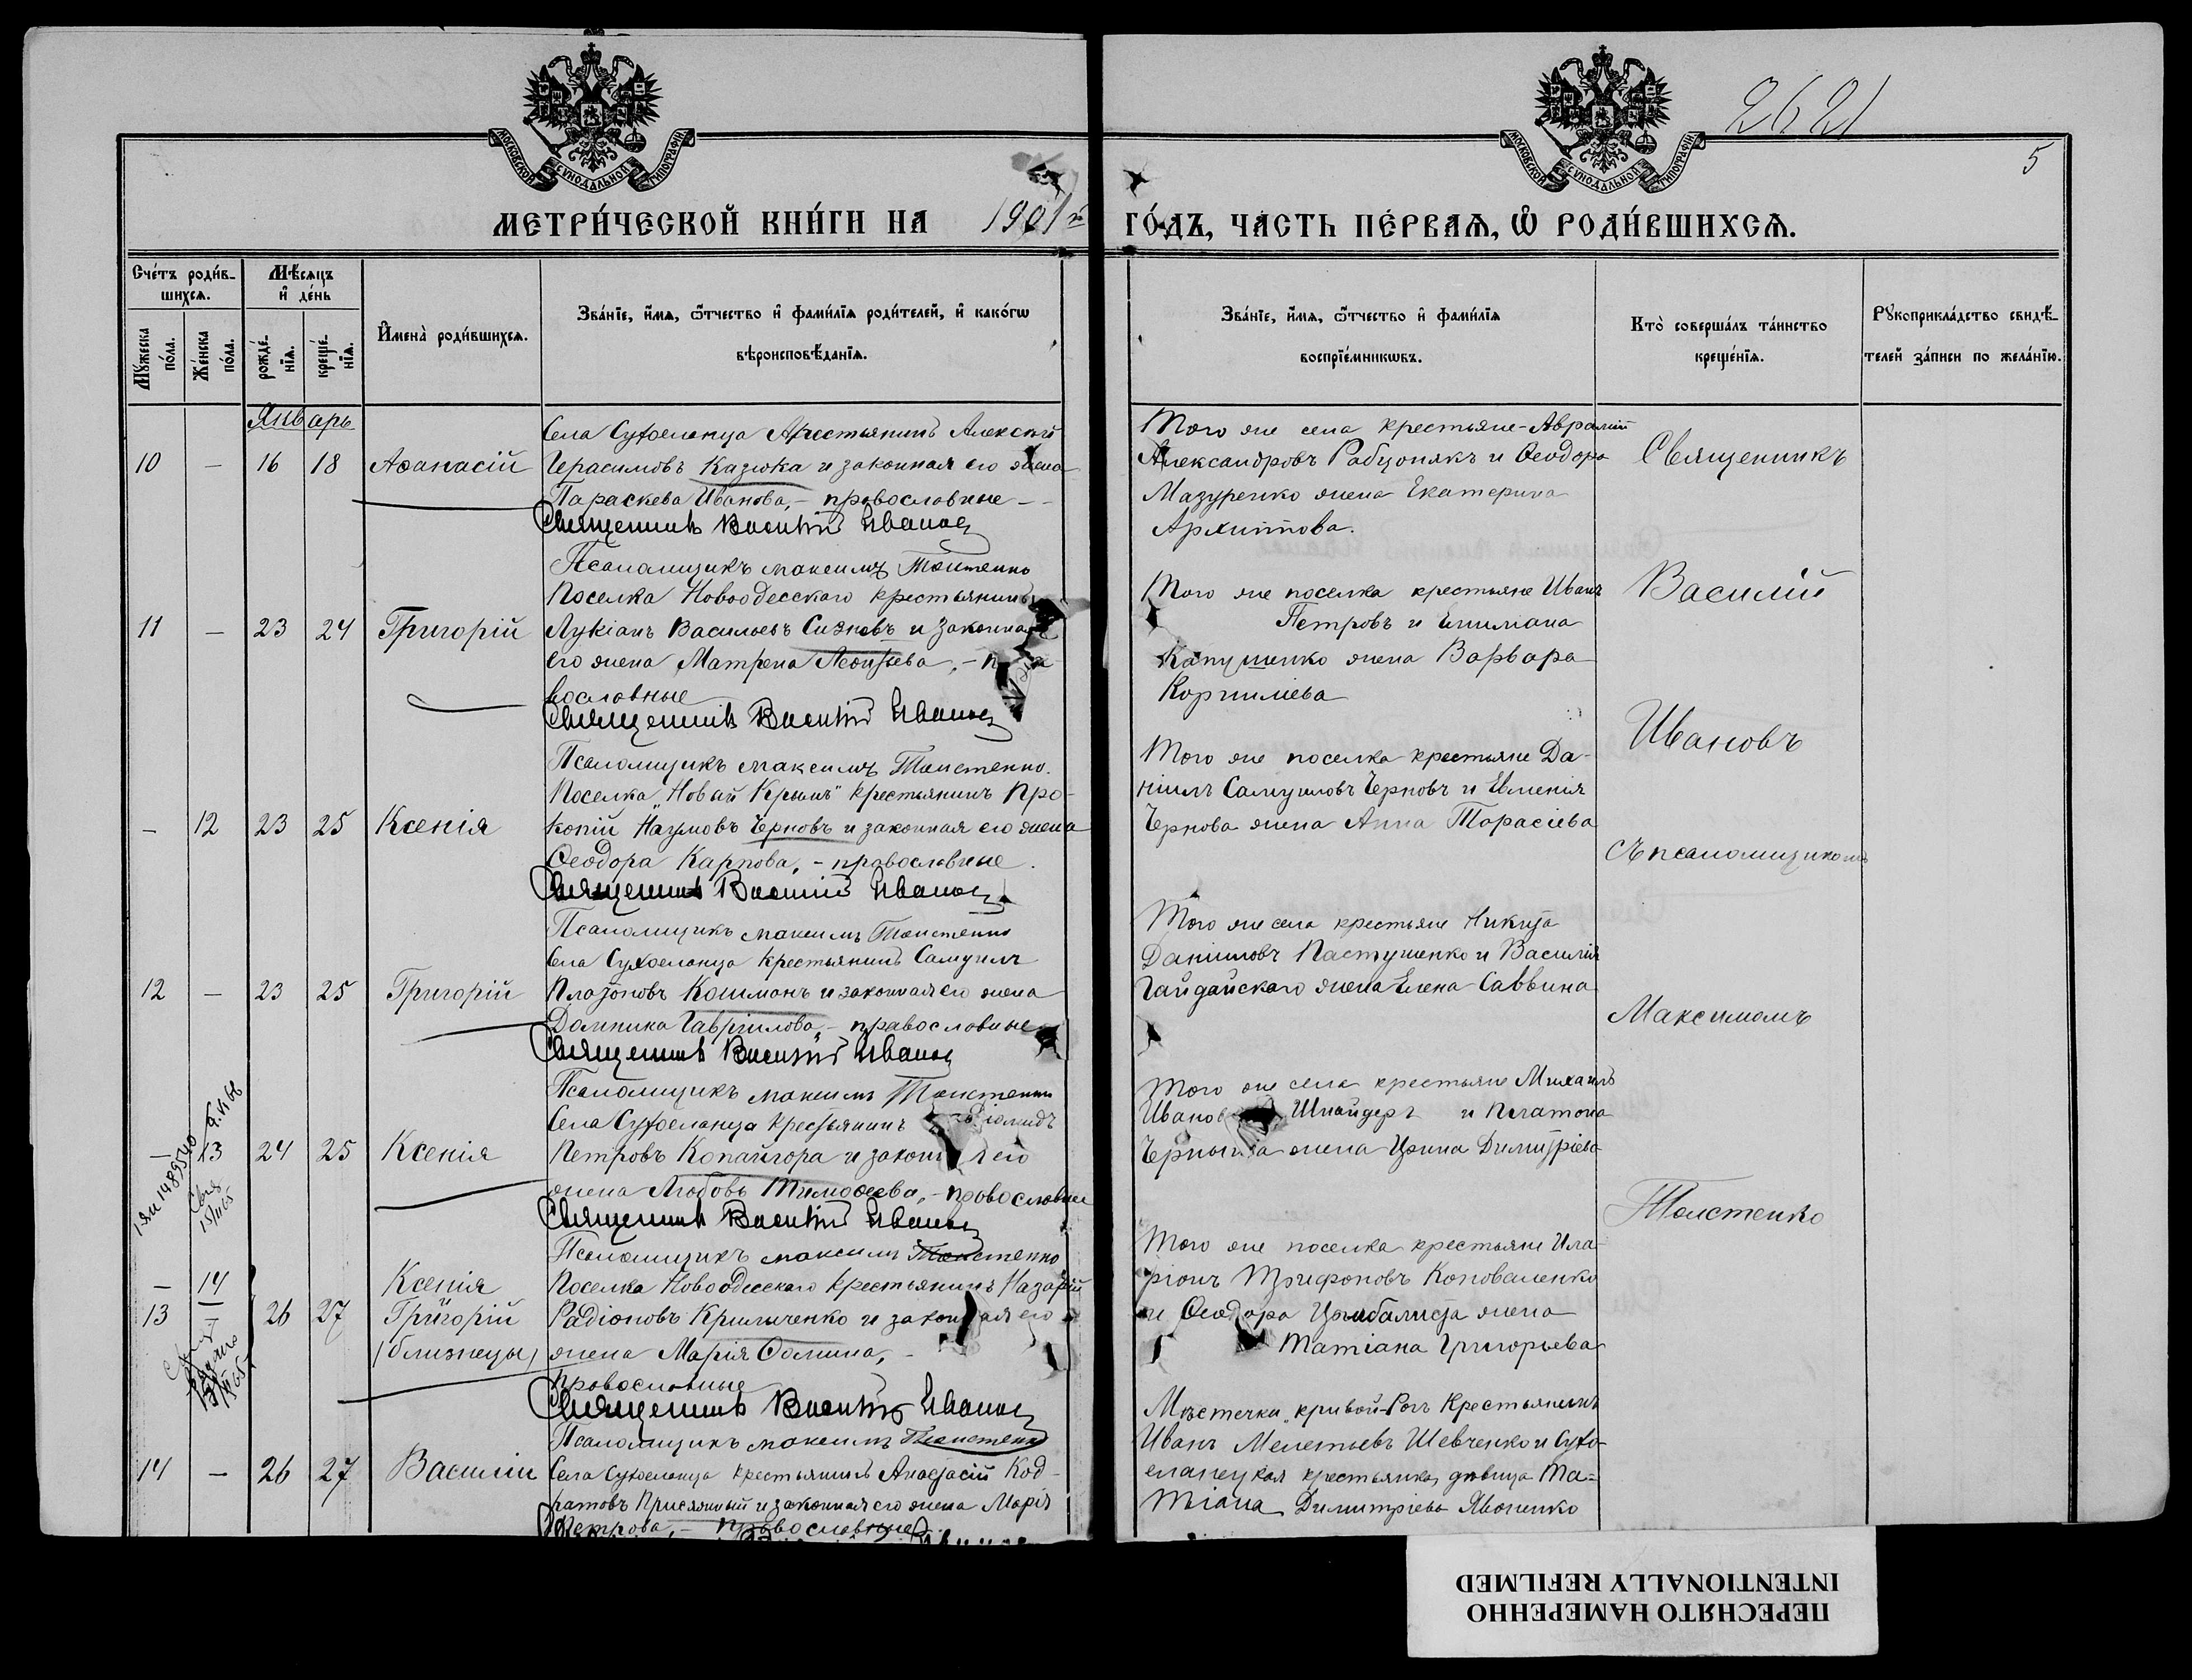 МОСКОВСКОЙ СѴНОДАЛЬНОЙ ТИПОГРАФІИ
МОСКОВСКОЙ СѴНОДАЛЬНОЙ ТИПОГРАФІИ
2621
5
МЕТРИ́ЧЕСКОЙ КНИ́ГИ НА 1901 й ГО́ДЪ, ЧА́СТЬ ПЕ́РВАѦ, Ѡ҆ РОДИ́ВШИХСѦ.
Сче́тъ роди́в-
шихсѧ.
Мѣ́сяцъ
и҆ де́нь
Мꙋ́жеска по́ла.
Же́нска по́ла.
рожде́-нїѧ.
креще́-нїѧ.
И҆мена̀ роди́вшихсѧ.
Зва́нїе, и҆́мѧ, ѻ҆́тчество и҆ фами́лїѧ роди́телей, и҆ како́гѡ
вѣроисповѣ́данїѧ.
Зва́нїе, и҆́мѧ, ѻ҆́тчество и҆ фами́лїѧ
воспрїе́мникѡвъ.
Кто̀ соверша́лъ та́инство
креще́нїѧ.
Рꙋкоприкла́дство свидѣ́-
телей за́писи по жела́нїю.
Январь
10 — 16 18 Аѳанасій
Села Сухоеланца Крестьянинъ Алексѣй
Герасимовъ Казюка и законная его жена
Параскева Иванова, – православные –
Священникъ Василій Ивановъ
Псаломщикъ Максимъ Толстенко
Того же села крестьяне – Аврамій
Александровъ Рабцонякъ и Ѳеодора
Мазуренко жена Екатерина
Архиппова.
11 — 23 24 Григорій
Поселка Новоодесскаго крестьянинъ
Лукіанъ Васильевъ Сизновъ и законная
его жена Матрена Леонтьева, – пра
вославные
Священникъ Василій Ивановъ
Псаломщикъ Максимъ Толстенко.
Того же поселка крестьяне Иванъ
Петровъ и
Капушенко жена Варвара
Корниліева
— 12 23 25 Ксенія
Поселка „Новый Крымъ" крестьянинъ Про-
копій Наумовъ Черновъ и законная его жена
Ѳеодора Карпова, – православные.
Священникъ Василій Ивановъ
Псаломщикъ Максимъ Толстенко
Того же поселка крестьяне Да-
ніилъ Самуиловъ Черновъ и Евменія
Чернова жена Анна Тарасіева
12 — 23 25 Григорій
Села Сухоеланца крестьянинъ Самуилъ
Платоновъ Кошманъ и законная его жена
Домника Гавріилова, – православные
Священникъ Василій Ивановъ
Псаломщикъ Максимъ Толстенко
Того же села крестьяне Никита
Даниловъ Пастушенко и Василія
Гайдайскаго жена Елена Саввина
— 13 24 25 Ксенія
Села Сухоеланца крестьянинъ
Петровъ Копайгора и закон я его
жена Любовь Тимоѳеева, – православные
Священникъ Василій Ивановъ
Псаломщикъ Максимъ Толстенко
Того же села крестьяне Михаилъ
Иванов Шнайдеръ и Платона
жена Ирина Димитріева
— 14 Ксенія
13 — 26 27 Григорій
(близнецы)
Поселка Новоодесскаго крестьянинъ Назарій
Радіоновъ Криличенко и законная его
жена Марія Ѳомина, –
православные
Священникъ Василій Ивановъ
Псаломщикъ Максимъ Толстенко
Того же поселка крестьяне Ила-
ріонъ Трифоновъ Коноваленко
и Ѳеодора Цымбалиста жена
Татіана Григорьева
14 — 26 27 Василій
Села Сухоеланца крестьянинъ Анастасій Код-
ратовъ Присяжный и законная его жена Марія
Петрова, – православные
Мѣстечка „Кривой-Рогъ Крестьянинъ
Иванъ Мелетьевъ Шевченко и Сухо-
еланецкая крестьянка, дѣвица Та-
тіана Димитріева Явоненко
Священникъ
Василій
Ивановъ
Съ псаломщикомъ
Максимомъ
Толстенко
ПЕРЕСНЯТО НАМЕРЕННО
INTENTIONALLY REFILMED